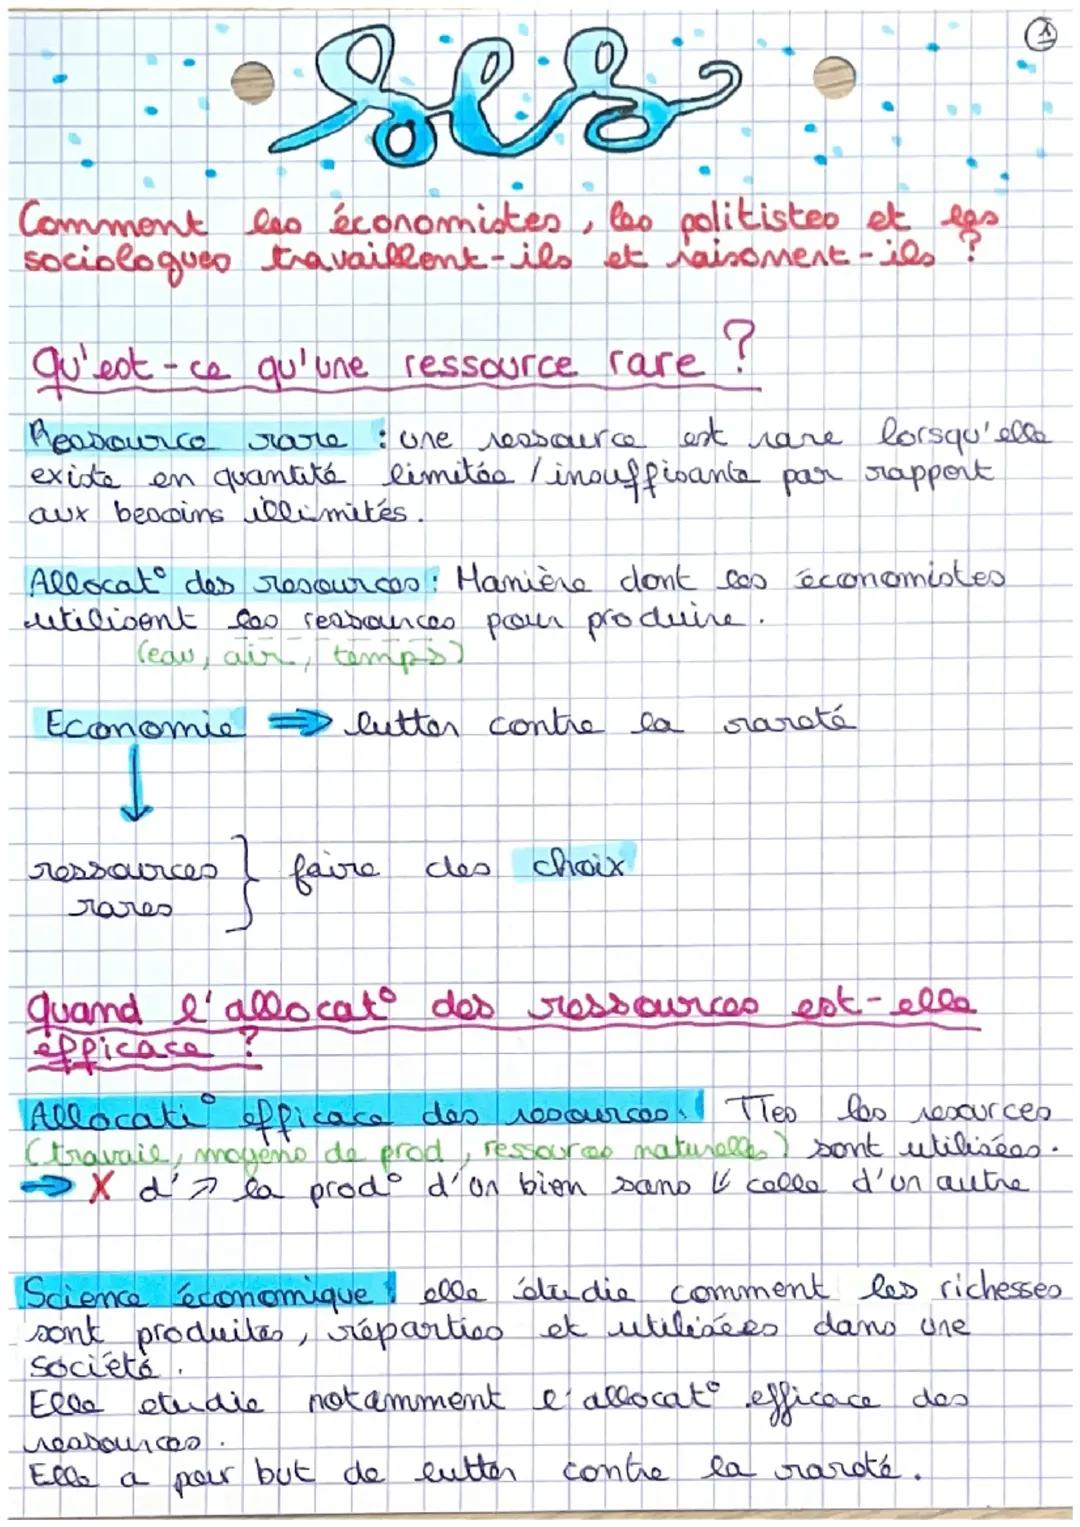 ses
1
Comment les économistes, les politistes et les
sociologues travaillent-ils et raisonent-ils ?
Qu'est-ce qu'une ressource rare ?
Ressource rare : une ressource est rare lorsqu'elle
existe en quantité limitée / insuffisante par rapport
aux besoins illimités.
Allocat° des resources : Manière dont les économistes
utilisent les ressources pour produire.
(eau, air, temps)
Economie ⇒ lutter contre la rareté
↓
ressources } faire des choix
rares
Quand l'allocat° des ressources est-elle
efficace ?
Allocati° efficace des resources : Ttes les resources
(travail, moyens de prod, ressources naturelles) sont utilisées.
⇒ X d'↗ la prod° d'un bien sans ↙ celle d'un autre
Science économique : elle étudie comment les richesses
sont produites, réparties et utilisées dans une
société.
Elle etudie notamment l'allocat° efficace des
ressources.
Elle a pour but de lutter contre la rareté.